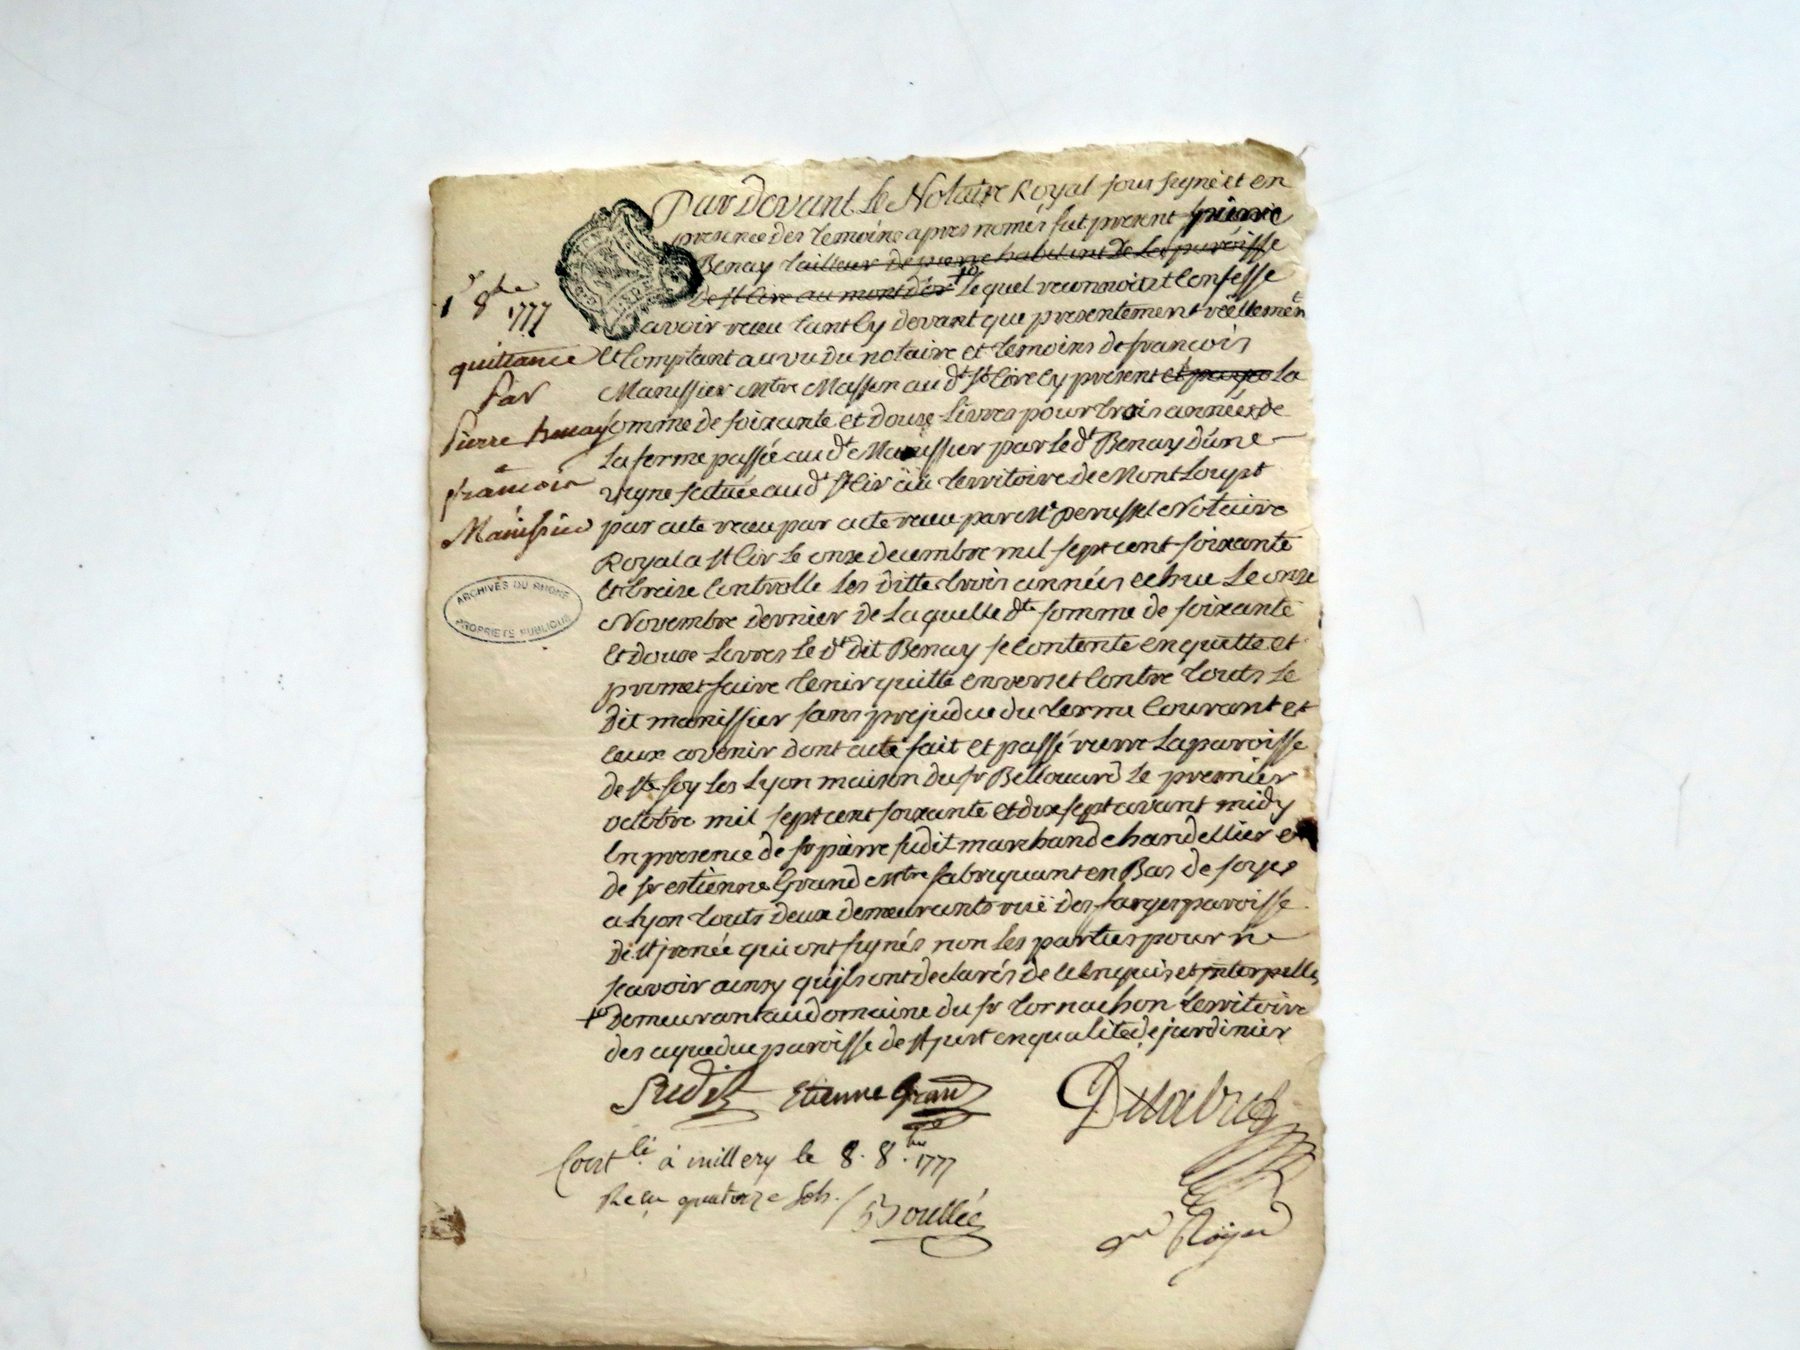 Par Devant le Notaire Royal sous signé et en
presence des temoins apres només fut present pierre
Benay tailleur de pierre habitant de la paroisse
de st Cire au mont d'or lequel reconnoit et Confesse
avoir recu tant Cy devant que presentement réellement
et Comptant au vu du notaire et temoins de francois
Manissier Mtre Masson au dt st Cire Cy present et par la
somme de soixante et douze livres pour trois années de
la ferme passée au dt Manissier par le dt Benay d'une
vigne scituée au dt st Cir au territoire de Mont Loupt
par acte recu par acte recu par Me perussel Notaire
Royal a st Cir le onze decembre mil sept cent soixante
et treize Controlle les ditte trois années echue le onze
Novembre dernier de laquelle dte somme de soixante
et douze livres le dt dit Benay se contente en quitte et
promet faire tenir quitte envers et Contre touts le
dit manissier sans prejudice du terme Courant et
ceux avenir dont acte fait et passé riere la paroisse
de ste foy les Lyon maison du sr Bellouard le premier
octobre mil sept cent soixante et dix sept avant midy
En presence de sr pierre sudit marchand chandellier et
de sr estienne Grand Mtre fabriquant en Bas de soyes
a Lyon touts deux demeurants ruë des farges paroisse
de st jrenée qui ont signés non les parties pour ne
scavoir ainsy qu'ils ont declarés de ce Enquis et jnterpellés
demeurant au domaine du sr tornachon territoire
des aqueduc paroisse de st just en qualité de jardinier
Sudit Etienne Grand
Contlé à millery le 8. 8.bre 1777
Recu quatorze sols.
Boullée
nre Royal
1r 8bre
1777
quittance
Par
Pierre Benay
a
francois
Manissier
ARCHIVES DU RHONE
PROPRIETE PUBLIQUE